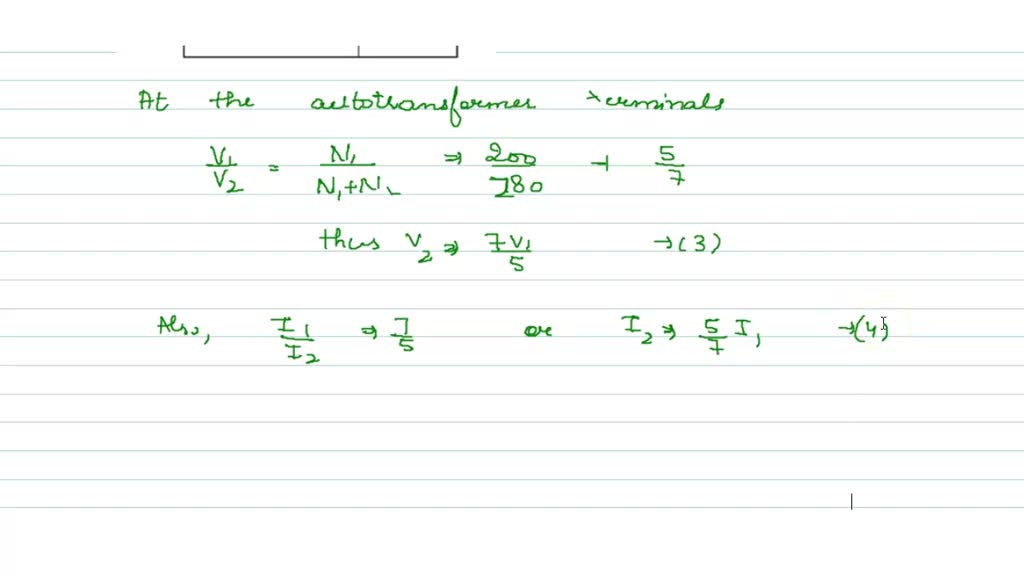 At the autotransformer terminals
V₁/V₂ = N₁/(N₁+N₂) ⇒ 200/280 → 5/7
thus V₂ ⇒ 7V₁/5 →(3)
Also, I₁/I₂ ⇒ 7/5 or I₂ ⇒ 5/7 I₁ →(4)